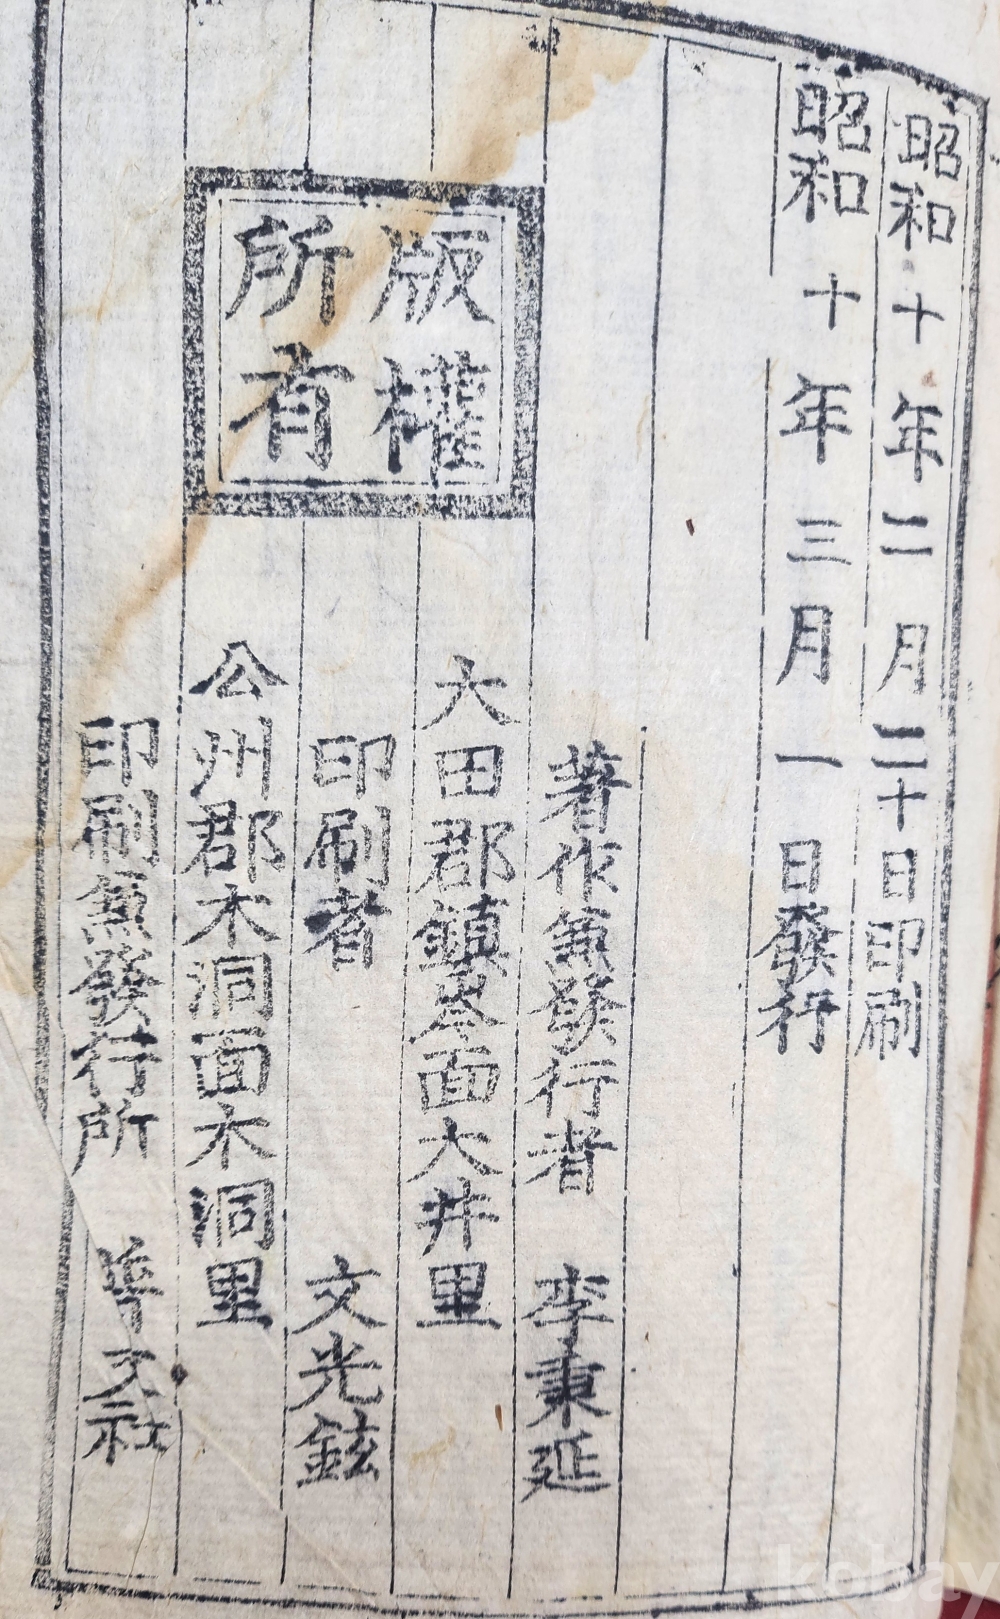 昭和十年二月二十日印刷
昭和十年三月一日發行
著作兼發行者 李秉延
大田郡鎮岑面大井里
版權
所有
印刷者 文光鉉
公州郡木洞面木洞里
印刷兼發行所 文社
kobay